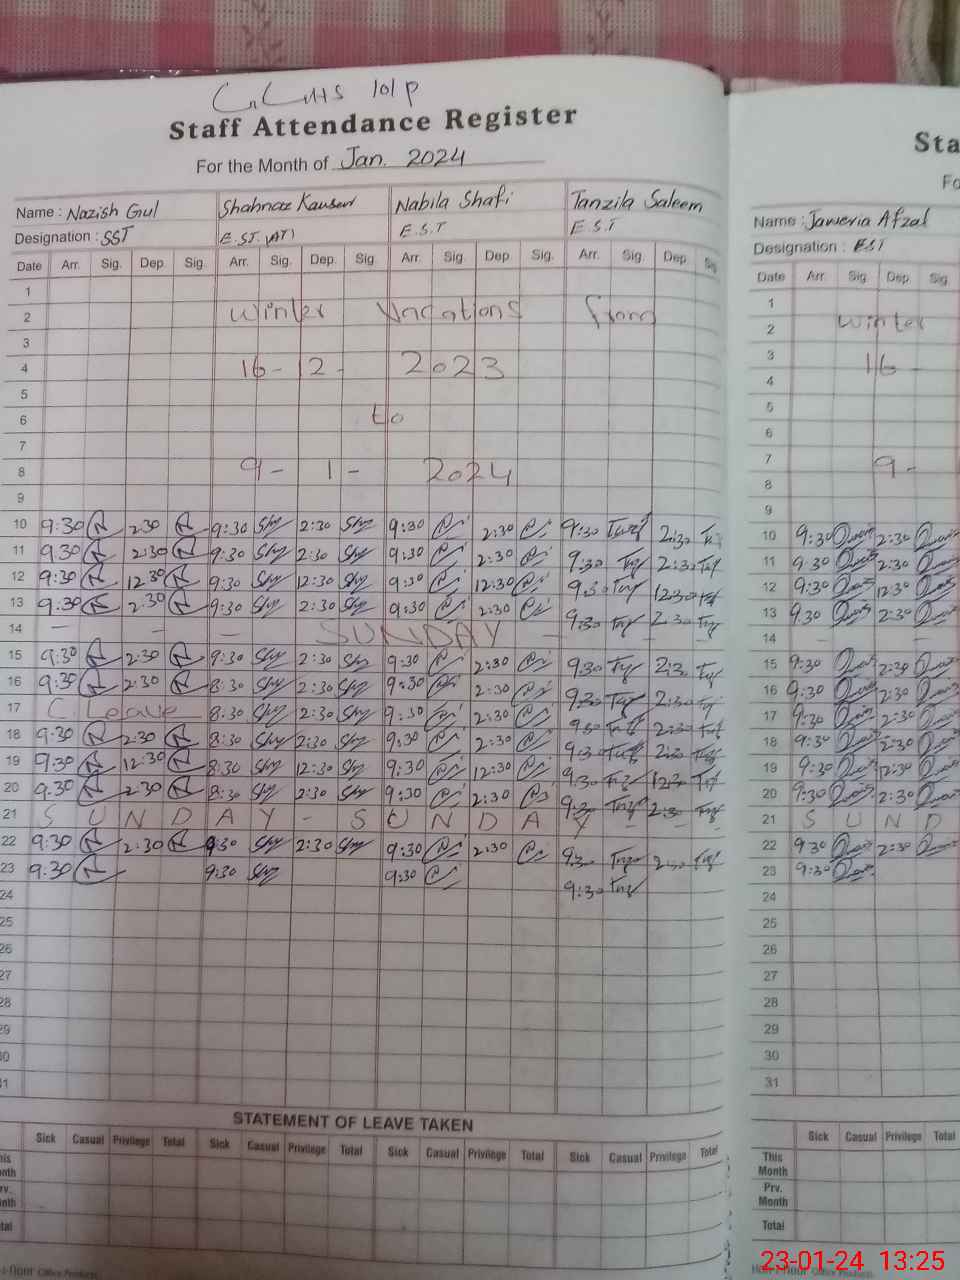 101P
Staff Attendance Register
For the Month of Jan. 2024
Name : Nazish Gul Shahnaz Kausar Nabila Shafi Tanzila Saleem
Designation : SST E.ST.(AT) E.S.T E.S.T
Date Arr. Sig. Dep. Sig. Arr. Sig. Dep. Sig. Arr. Sig. Dep Sig. Arr. Sig. Dep. Sig
1
2 Winter Vacations from
3
4 16 - 12 - 2023
5
6 to
7
8 9 - 1 - 2024
9
10 9:30 2:30 9:30 2:30 9:30 2:30 9:30 2:30
11 9:30 2:30 9:30 2:30 9:30 2:30 9:30 2:30
12 9:30 12:30 9:30 12:30 9:30 12:30 9:30 12:30
13 9:30 2:30 9:30 2:30 9:30 2:30 9:30 2:30
14 — — — SUNDAY —
15 9:30 2:30 9:30 2:30 9:30 2:30 9:30 2:30
16 9:30 2:30 8:30 2:30 9:30 2:30 9:30 2:30
17 C Leave 8:30 2:30 9:30 2:30 9:30 2:30
18 9:30 2:30 8:30 2:30 9:30 2:30 9:30 2:30
19 9:30 12:30 8:30 12:30 9:30 12:30 9:30 12:30
20 9:30 2:30 8:30 2:30 9:30 2:30 9:30 2:30
21 S U N D A Y - S U N D A Y - -
22 9:30 2:30 9:30 2:30 9:30 2:30 9:30 2:30
23 9:30 9:30 9:30 9:30
24
25
26
27
28
29
30
31
STATEMENT OF LEAVE TAKEN
Sick Casual Privilege Total Sick Casual Privilege Total Sick Casual Privilege Total Sick Casual Privilege Total
Sta
Fo
Name : Jaweria Afzal
Designation : EST
Date Arr. Sig. Dep Sig.
1
2 Winter
3 16 -
4
5
6
7 9 -
8
9
10 9:30 2:30
11 9:30 2:30
12 9:30 12:30
13 9:30 2:30
14 — —
15 9:30 2:30
16 9:30 2:30
17 9:30 2:30
18 9:30 2:30
19 9:30 12:30
20 9:30 2:30
21 S U N D
22 9:30 2:30
23 9:30
24
25
26
27
28
29
30
31
Sick Casual Privilege Total
This Month
Prv. Month
Total
Office Products
23-01-24 13:25